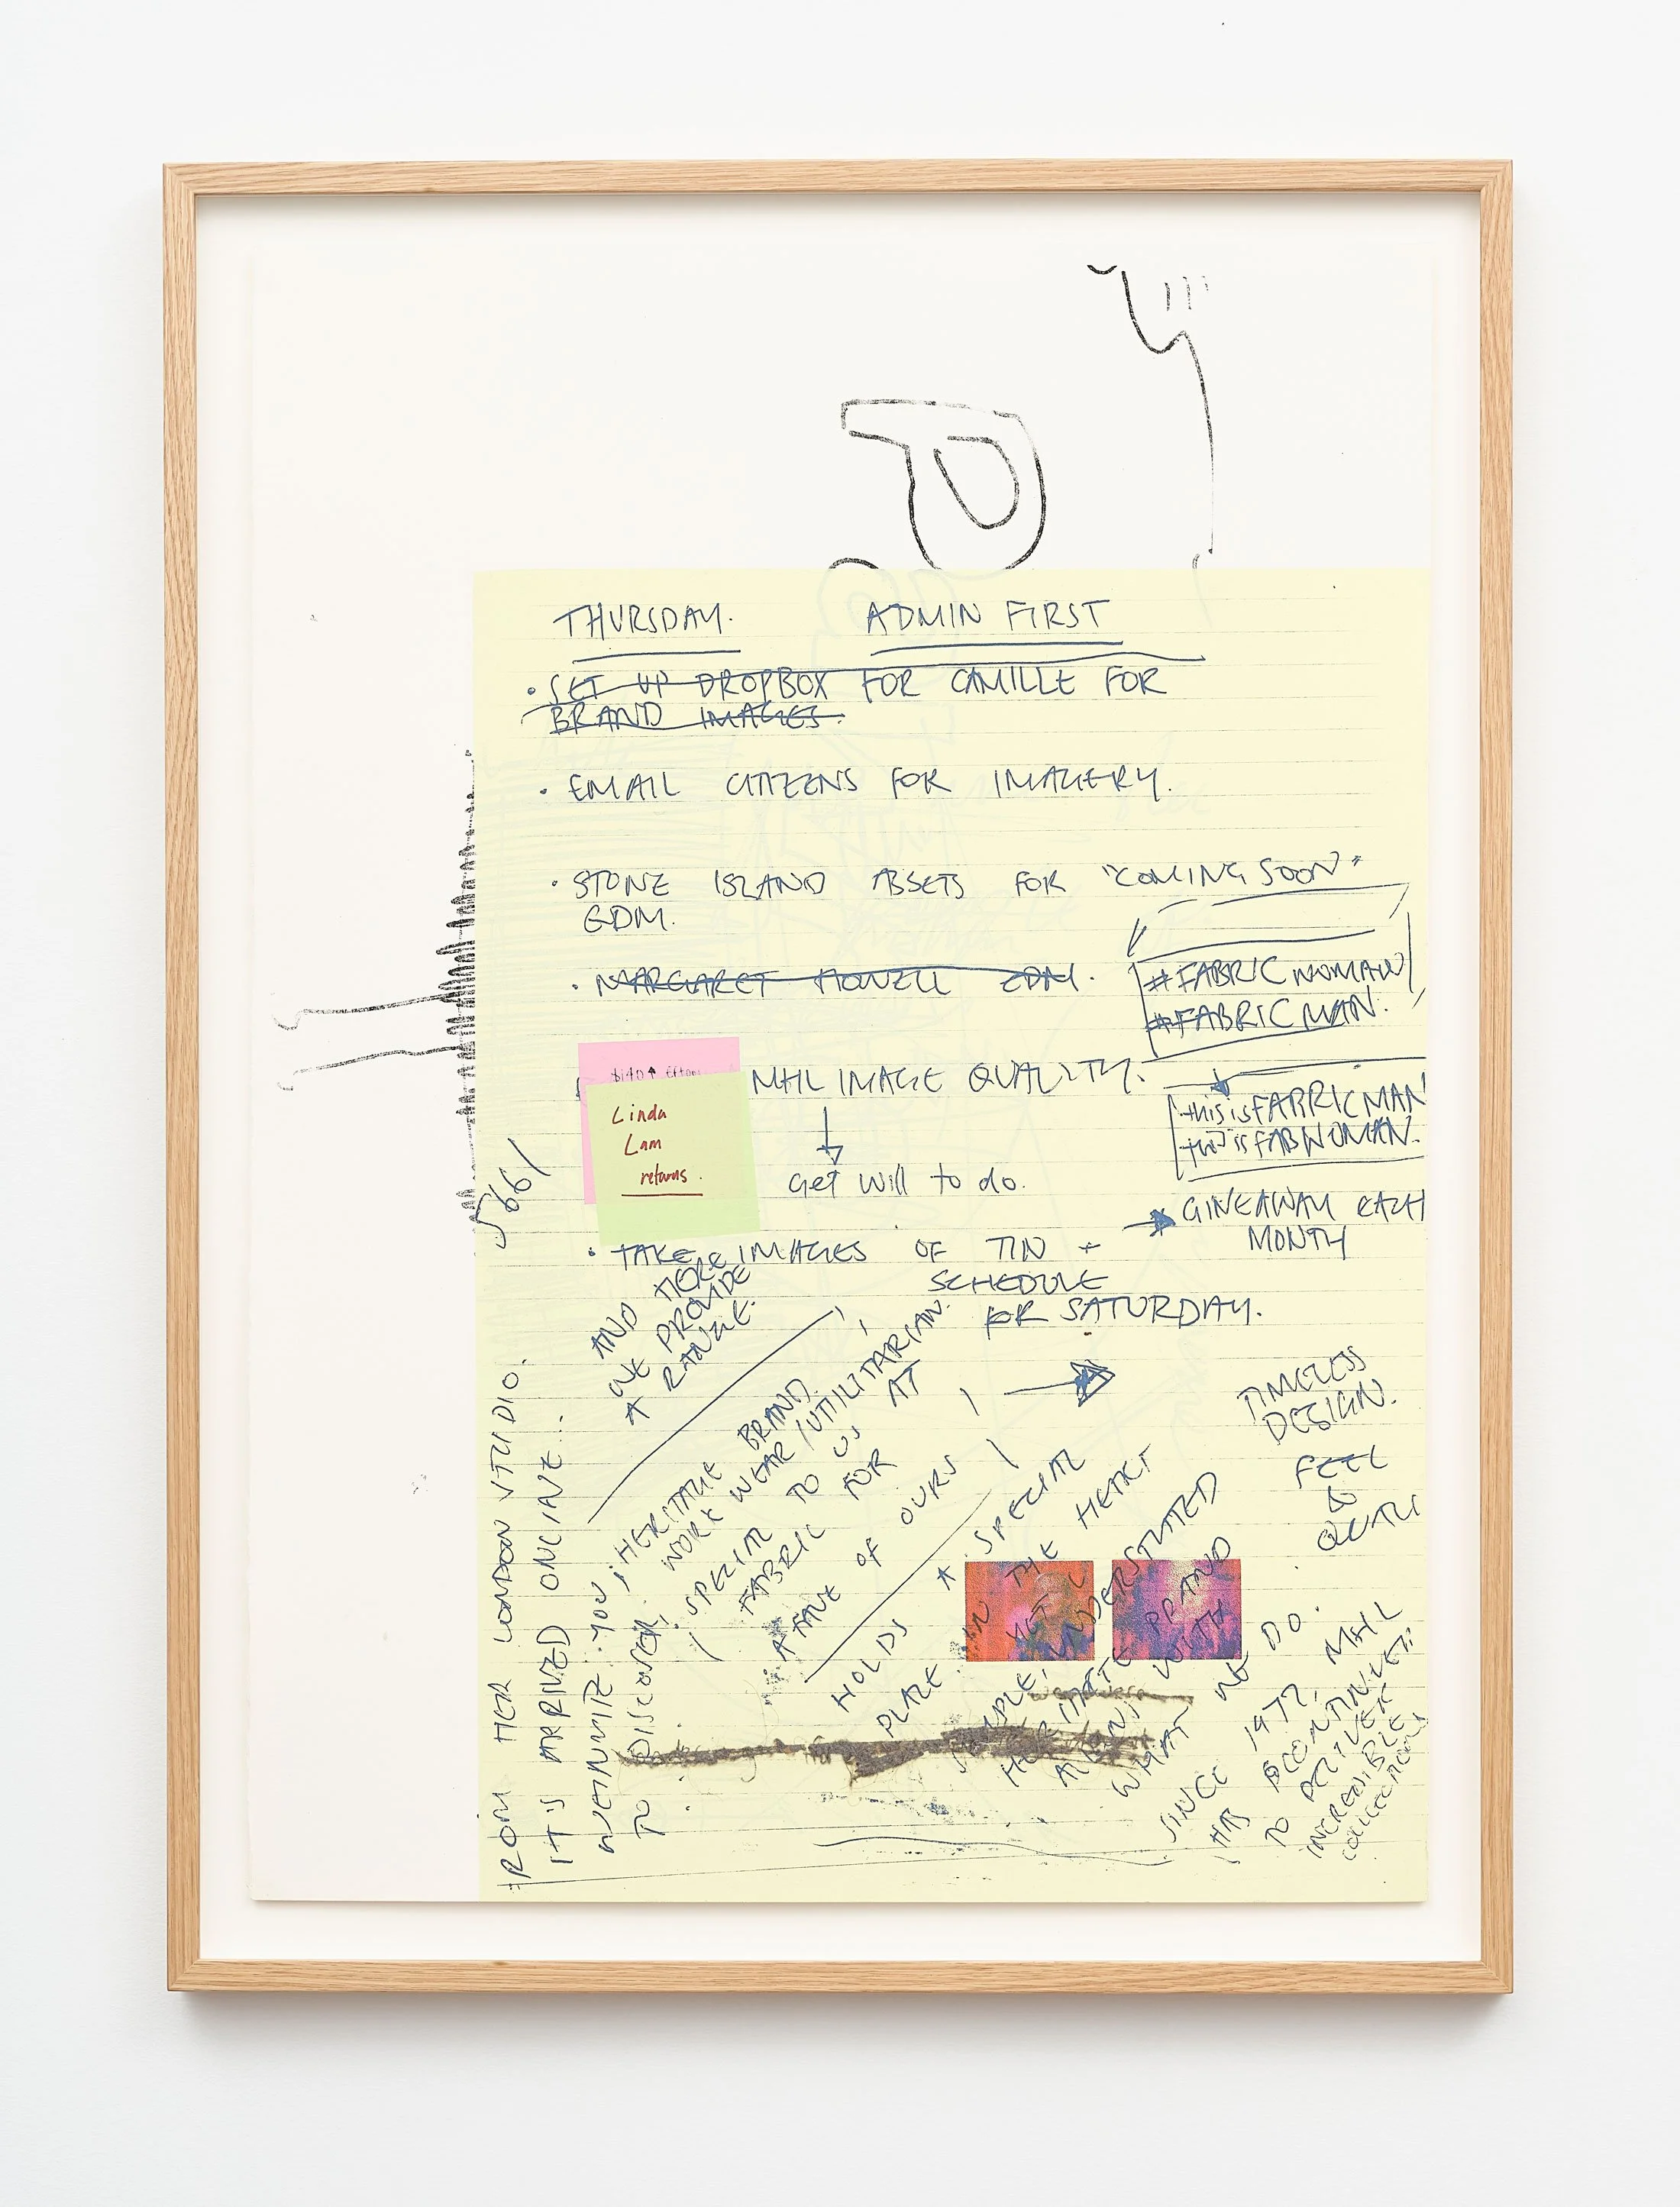 THURSDAY. ADMIN FIRST
· SET UP DROPBOX FOR CAMILLE FOR
BRAND IMAGES.
· EMAIL CITIZENS FOR IMAGERY.
· STONE ISLAND ASSETS FOR "COMING SOON"
EDM.
· MARGARET HOWELL EDM.
#FABRICWOMAN
#FABRICMAN.
MHL IMAGE QUALITY.
this is FABRICMAN
this is FABWOMAN.
Linda
Lam
returns.
Get Will to do.
GIVEAWAY EACH
MONTH
· TAKE IMAGES OF TIN +
SCHEDULE
FOR SATURDAY.
AND HERE
WE PROVIDE
A RANGE.
HERITAGE BRAND.
WORK WEAR/UTILITARIAN.
SPECIAL TO US AT
FABRIC FOR
A FAVE OF OURS
TIMELESS
DESIGN.
FEEL
&
HOLDS A SPECIAL
PLACE IN THE HEART
YET UNDERSTATED
BRAND
WITH
WHAT WE DO.
SINCE 1972, MHL
HAS
TO DELIVER
INCREDIBLE
COLLECTIONS
HER LONDON STUDIO.
IT'S ARRIVED ONLINE...
YOU
TO DISCOVER.